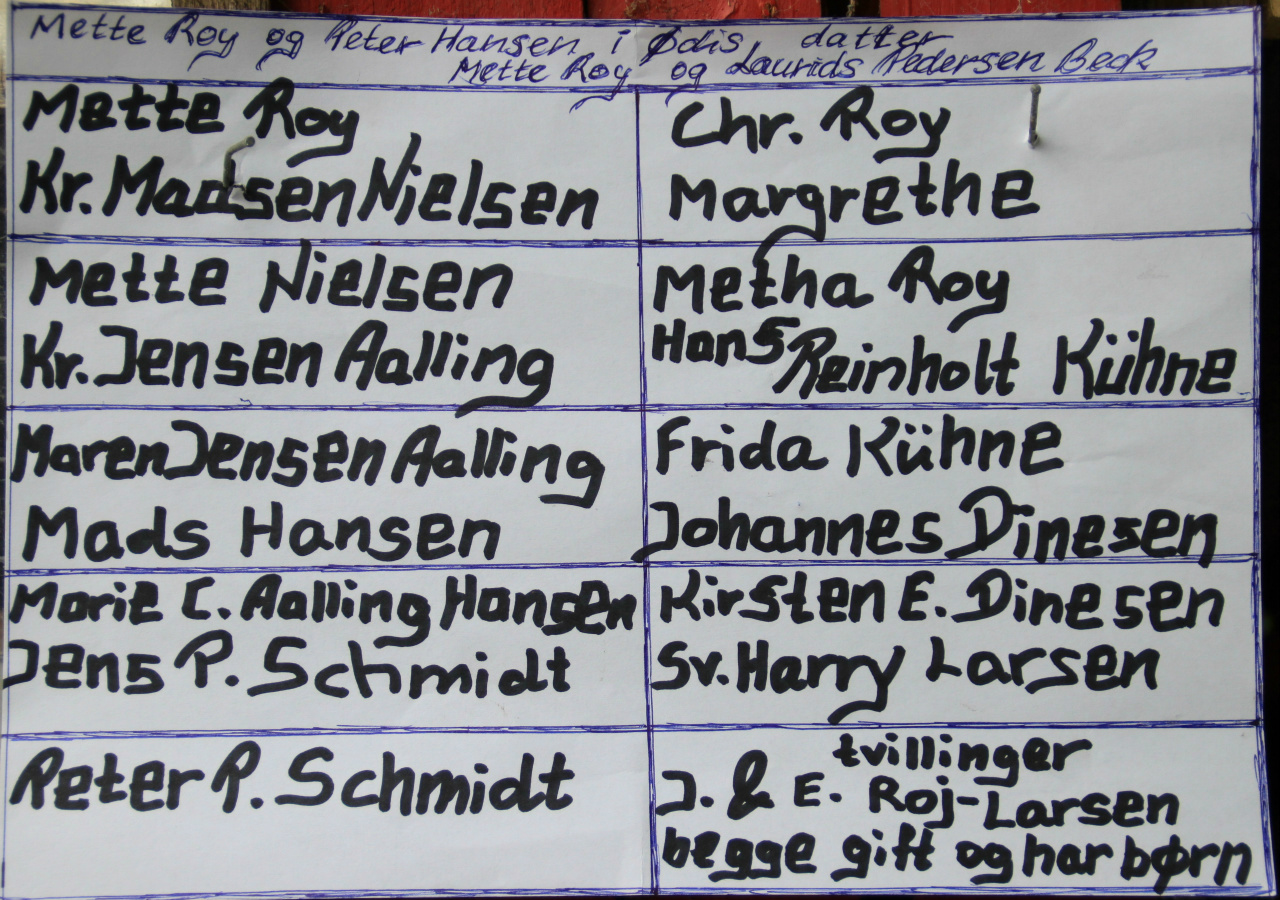 Mette Roy og Peter Hansen i Ødis datter
Mette Roy og Laurids Pedersen Beck
Mette Roy
Kr. Madsen Nielsen
Chr. Roy
Margrethe
Mette Nielsen
Kr. Jensen Aalling
Metha Roy
Hans Reinholt Kühne
Maren Jensen Aalling
Mads Hansen
Frida Kühne
Johannes Dinesen
Marie C. Aalling Hansen
Jens P. Schmidt
Kirsten E. Dinesen
Sv. Harry Larsen
Peter P. Schmidt
tvillinger
J. & E. Roj-Larsen
begge gift og har børn